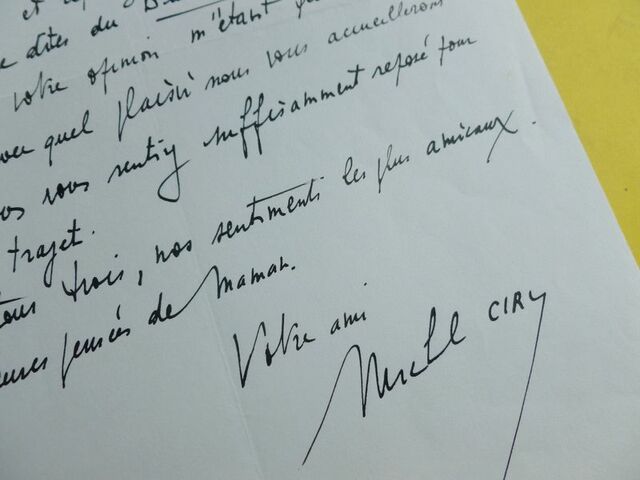 et
dites du
votre opinion m'étant
avec quel plaisir nous vous accueillerons
vous sentirez suffisamment reposé pour
trajet.
tous trois, nos sentiments les plus amicaux.
pensées de Maman.
Votre ami
Michel CIRY